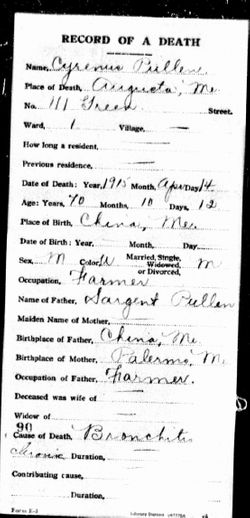 RECORD OF A DEATH
Name, Cyrenus Pullen
Place of Death, Augusta, Me.
No. 111 Green Street.
Ward, 1 Village,
How long a resident,
Previous residence,
Date of Death: Year, 1915 Month, Apr Day, 14
Age: Years, 70 Months, 10 Days, 12
Place of Birth, China, Me.
Date of Birth: Year, Month, Day
Sex, M Color, W Married, Single, Widowed, or Divorced, M
Occupation, Farmer
Name of Father, Sargent Pullen
Maiden Name of Mother,
Birthplace of Father, China, Me.
Birthplace of Mother, Palermo, M.
Occupation of Father, Farmer.
Deceased was wife of
Widow of
90
Cause of Death, Bronchitis
chronic Duration,
Contributing cause,
Duration,
Form